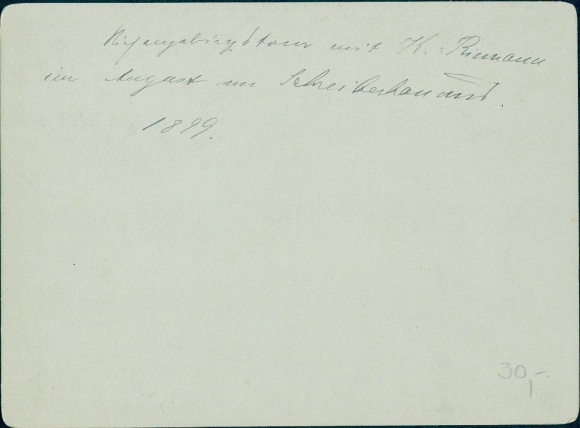 Riesengebirgstour mit K. Riemann
im August in Schreiberhau
1899.
30,-